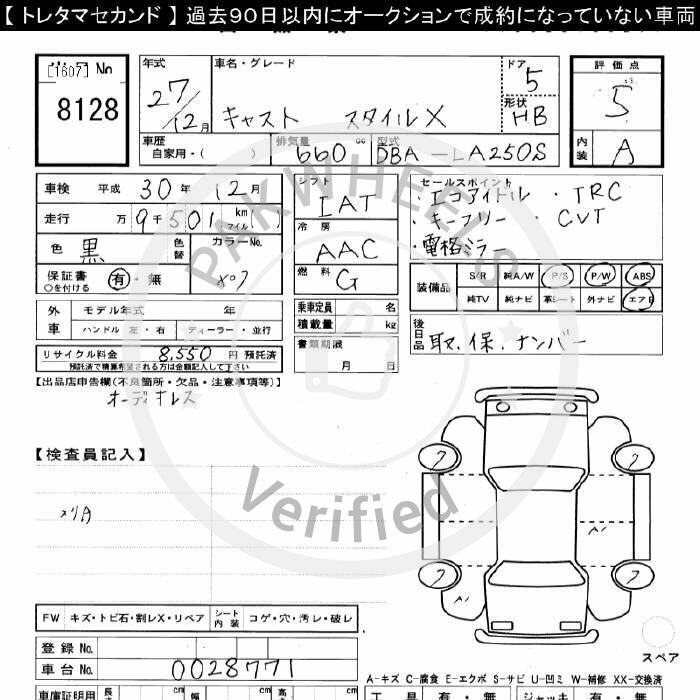 【トレタマセカンド】過去９０日以内にオークションで成約になっていない車両
[1607] No
8128
年式 27/12月
車名・グレード キャスト スタイルX
ドア 5
形状 HB
評価点 5
内装 A
車歴 自家用・( )
排気量 660 cc
型式 DBA-LA250S
車検 平成 30年 12月
走行 万 9千501 km マイル
色 黒
色替
カラーNo. X07
保証書 有・無
○を付ける
シフト IAT
冷房 AAC
燃料 G
セールスポイント
・エコアイドル ・TRC
・キーフリー ・CVT
・電格ミラー
装備品 S/R 純A/W P/S P/W ABS
純TV 純ナビ 革シート 外ナビ エアB
外車 モデル年式 年
ハンドル 左・右 ディーラー・並行
乗車定員 名
積載量 kg
書類期限 月 日
後日品 取.保.ナンバー
リサイクル料金 8,550 円 預託済
預託済で積算希望される方は金額記入して下さい
【出品店申告欄(不良箇所・欠品・注意事項等)】
オーディオレス
【検査員記入】
メリA
A1
A1
FW キズ・トビ石・割レX・リペア シート内装 コゲ・穴・汚レ・破レ
スペア
登録 No.
車台 No. 0028771
A-キズ C-腐食 E-エクボ S-サビ U-凹ミ W-補修 XX-交換済
車庫証明用 長 cm cm 高 cm
工具 有・無 ジャッキ 有・無
PAKWHEELS
Verified